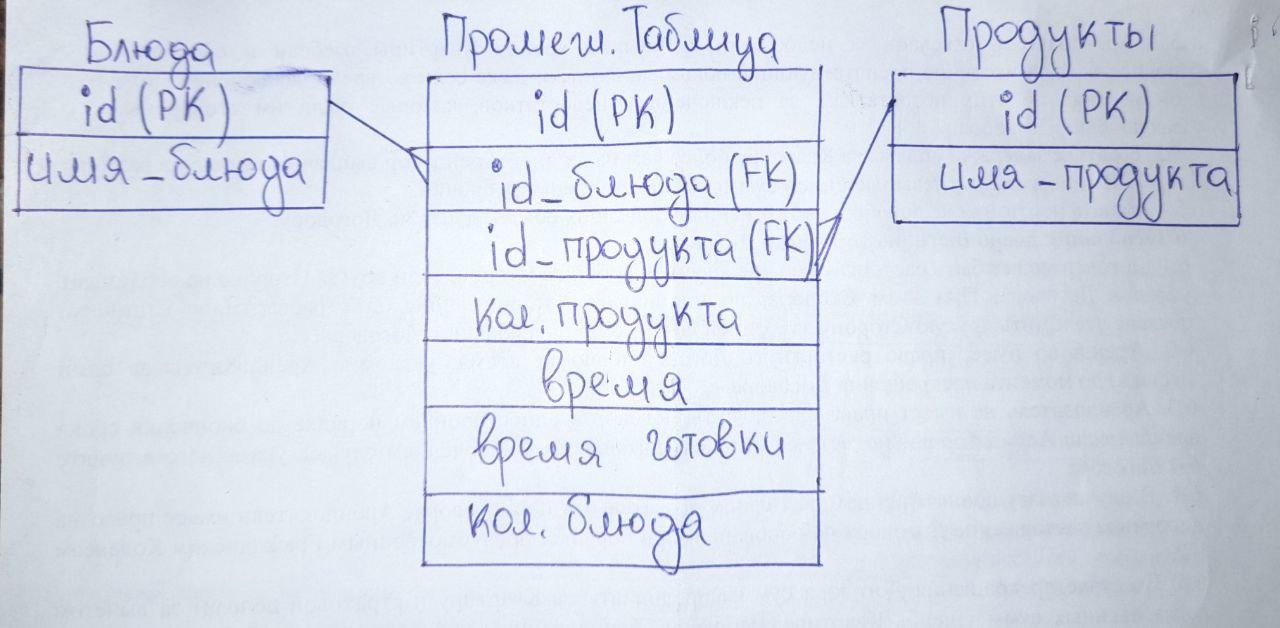 Блюда
id (PK)
имя_блюда
Промеж. Таблица
id (PK)
id_блюда (FK)
id_продукта (FK)
Кол. продукта
время
время готовки
Кол. блюда
Продукты
id (PK)
имя_продукта